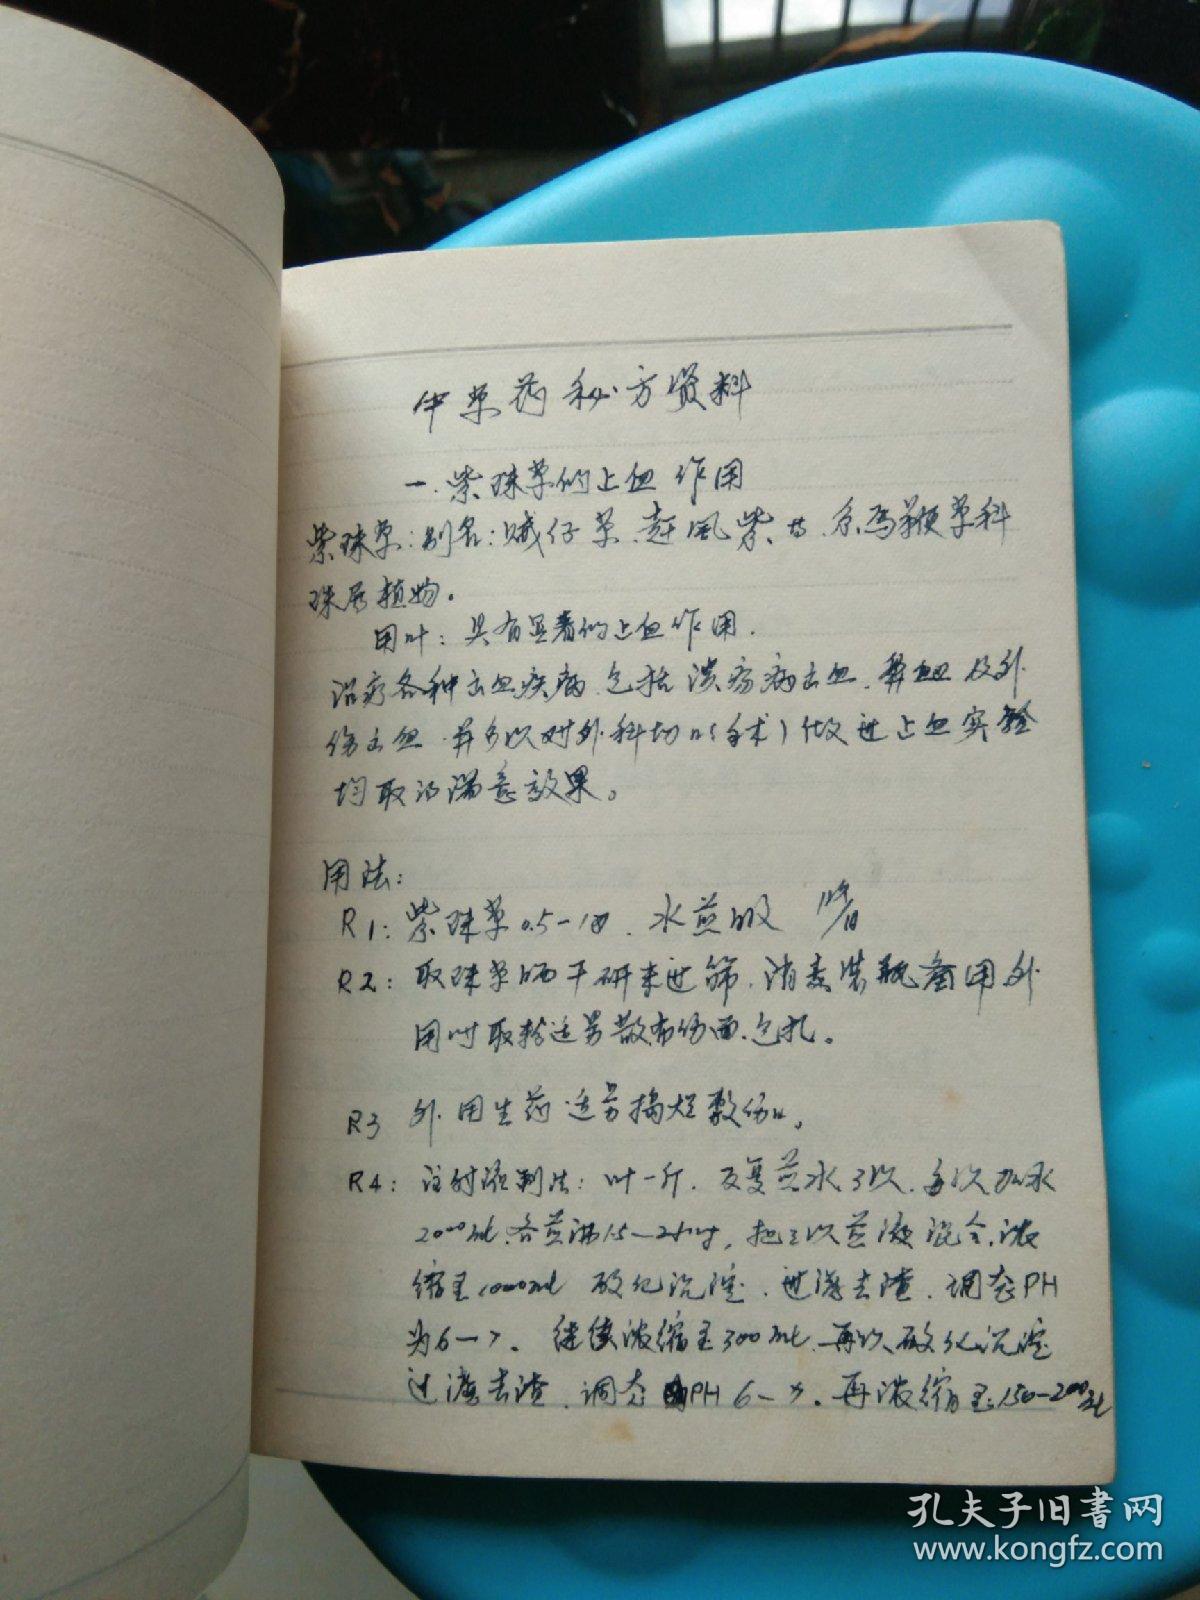 中草药秘方资料
一.紫珠草的止血作用
紫珠草:别名:贼仔草、赶风紫、系马鞭草科
珠属植物。
用叶:具有显著的止血作用.
治疗各种出血疾病.包括溃疡病出血.鼻衄及外
伤出血.并多次对外科切口(手术)做过止血实验
均取得满意效果。
用法:
R1:紫珠草0.5-1两.水煎服
R2:取珠草晒干研末过筛.消毒装瓶备用外
用时取粉适量散布伤面.包扎。
R3 外用生药适量捣烂敷伤口。
R4:注射液制法:叶一斤.反复煎水3次.每次加水
2000ml.各煎沸15-2 把三次煎液混合.浓
缩至1000ml 酸化沉淀.过滤去渣.调态PH
为6-7.继续浓缩至300ml.再次酸化沉淀
过滤去渣.调态PH6-7.再浓缩至150-200ml
孔夫子旧书网
www.kongfz.com